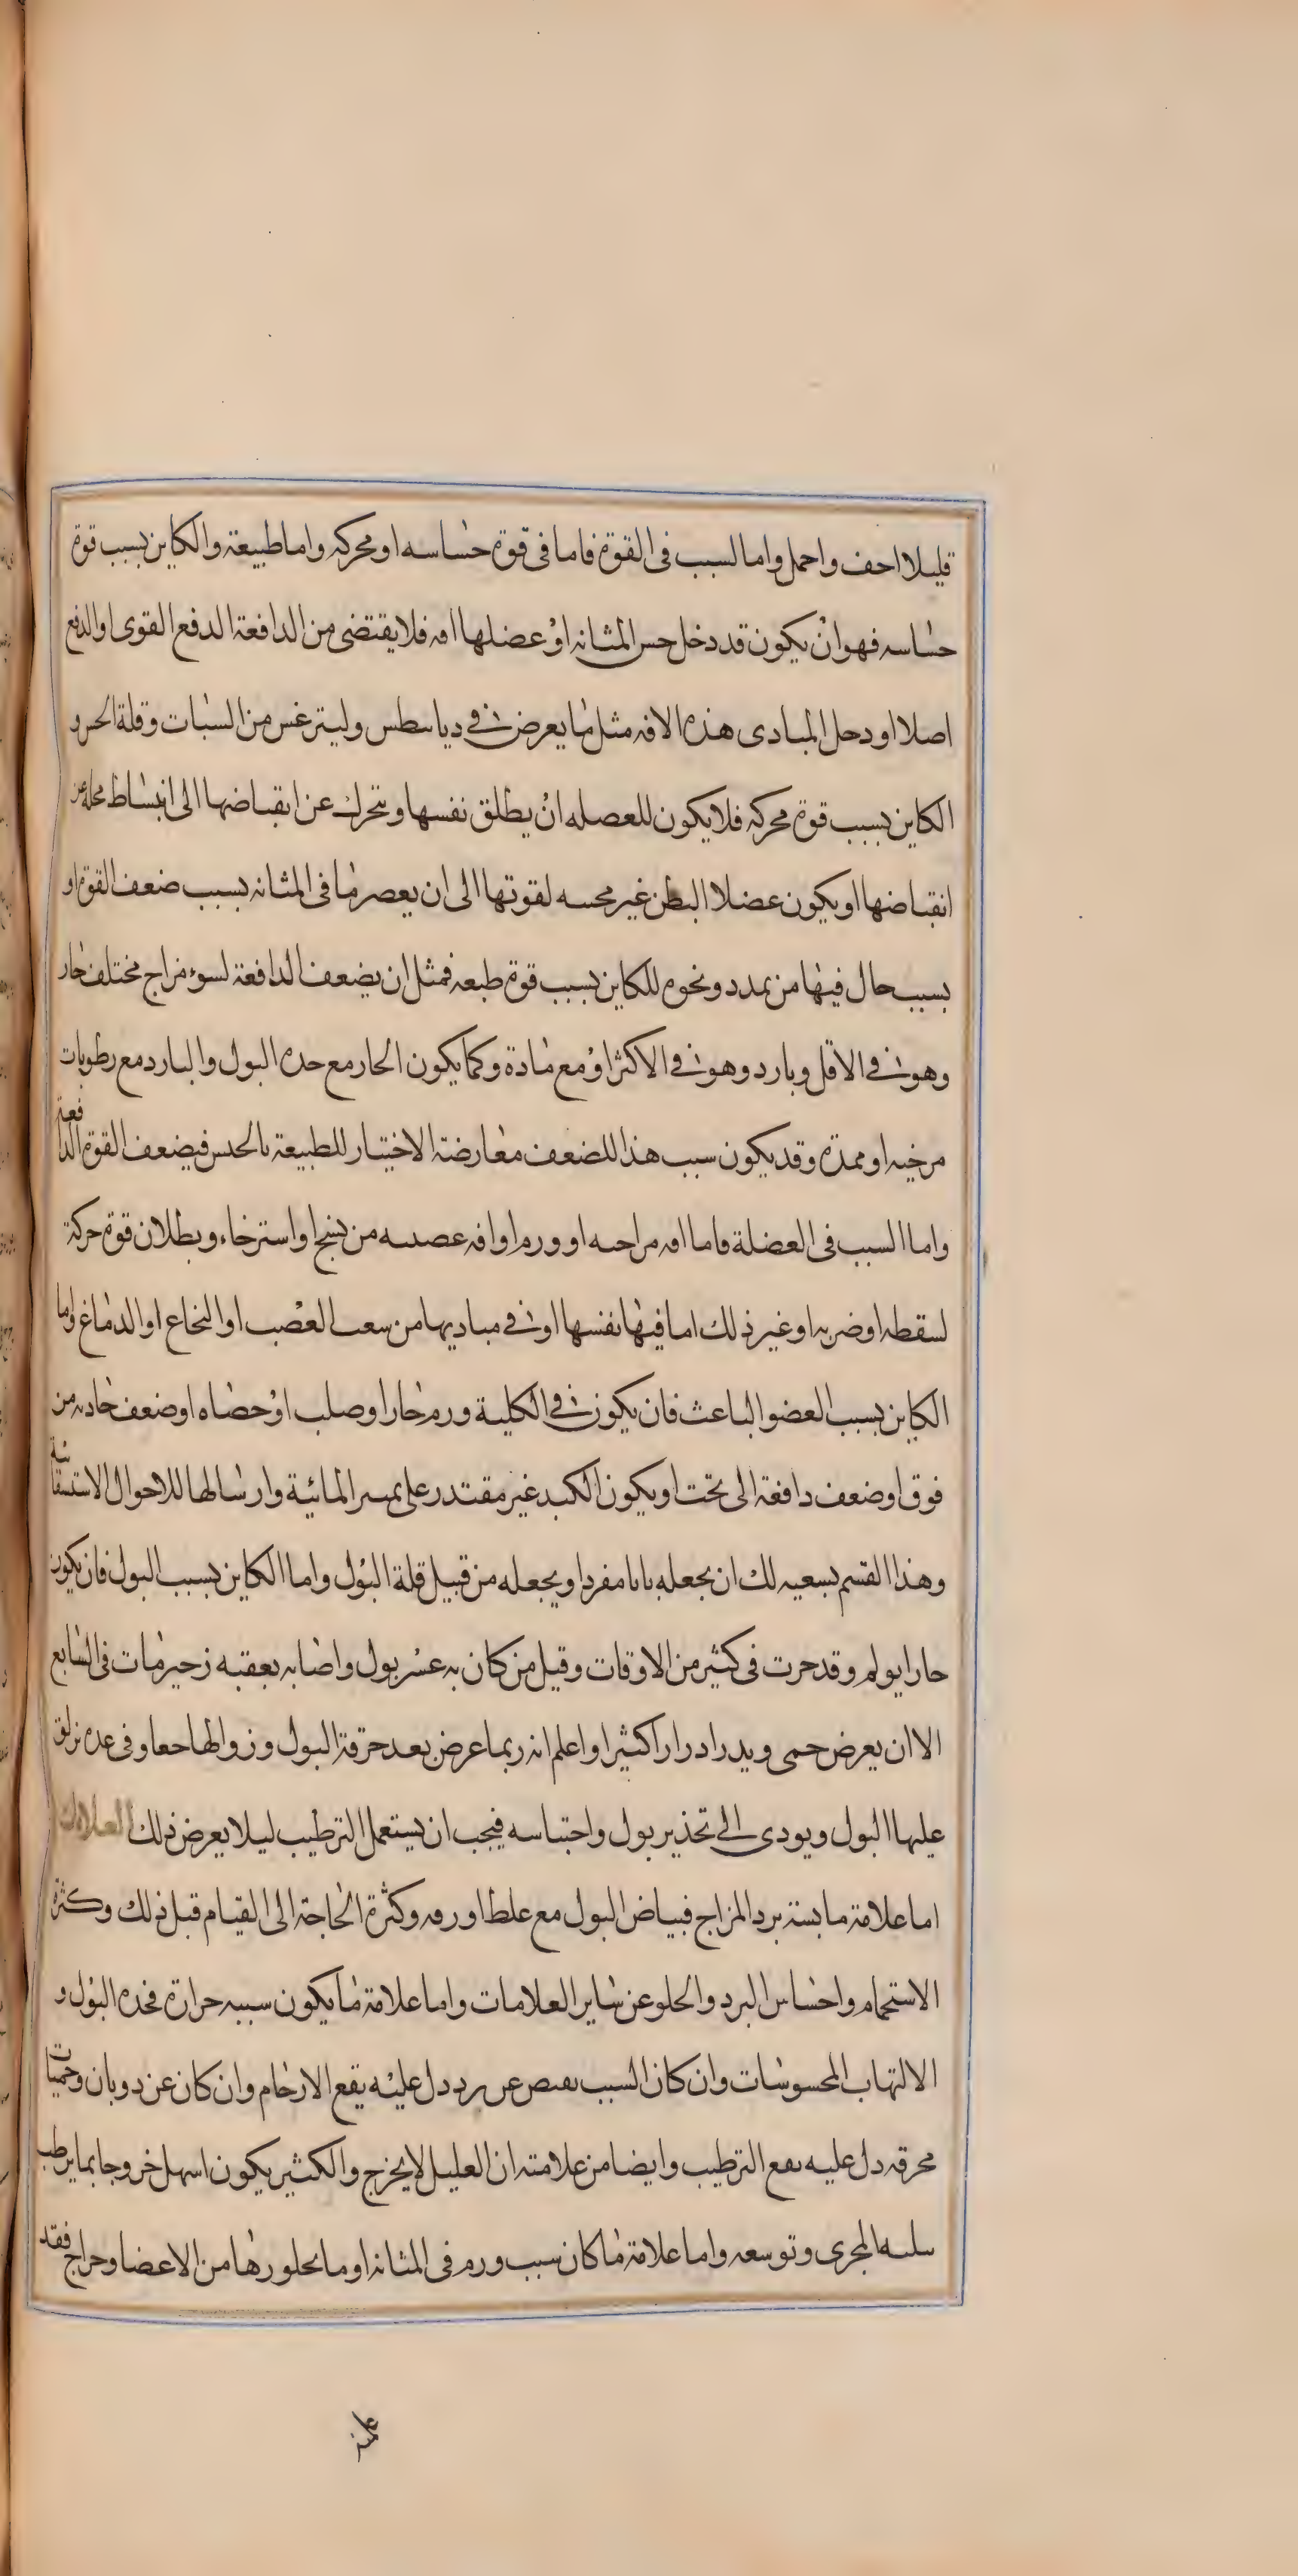 قليلا احف واحمل واما السبب فى القوة فاما فى قوة حساسه او محركه واما طبيعة والكاين بسبب قوة
حساسه فهو ان يكون قد دخل حس المثانه او عضلها افه فلا يقتضى من الدافعة الدفع القوى او الدفع
اصلا او دحل المبادى هذه الافه مثل ما يعرض فى دياسطس وليترغس من السبات وقلة الحس و
الكاين بسبب قوة محركه فلا يكون للعصله ان يطلق نفسها ويتحرك عن انقباضها الى انبساط محله عن
انقباضها او يكون عضلا البطن غير محسه لقوتها الى ان يعصر ما فى المثانه بسبب ضعف القوة او
بسبب حال فيها من تمدد ونحوه للكاين بسبب قوة طبعه فمثل ان يضعف الدافعة لسوء مزاج مختلف حار
وهو فى الاقل وبارد وهو فى الاكثر او مع مادة وكما يكون الحار مع حده البول والبارد مع رطوبات
مرخيه او ممدة وقد يكون سبب هذا للضعف معارضة الاختيار للطبيعة بالحبس فيضعف القوة الدافعة
واما السبب فى العضلة فاما افه مراحىه او ورم او افه عصبيه من تشنج او استرخاء وبطلان قوة حركة
لسقطه او ضربه او غير ذلك اما فيها نفسها او فى مباديها من سعب العصب او النخاع او الدماغ واما
الكاين بسبب العضو الباعث فان يكون فى الكلية ورم حار او صلب او حصاه او ضعف جاذبه من
فوق او ضعف دافعة الى تحت او يكون الكبد غير مقتدر على تميىز المائية وارسالها للاحوال الاستسقائية
وهذا القسم بسعيه لك ان يجعله بابا مفردا ويجعله من قبيل قلة البول واما الكاين بسبب البول فان يكون
حارا يولم وقد حرت فى كثير من الاوقات وقيل من كان به عسر بول واصابه بعقبه زحير مات فى السابع
الا ان يعرض حمى ويدر ادرارا كثيرا واعلم انه ربما عرض بعد حرقة البول وزوالها حعاو فى عده نزلق
عليها البول ويودى الى تحذير بول واحتباسه فيجب ان يستعمل الترطيب ليلا يعرض ذلك العلامات
اما علامة ما بسته برد المزاج فبياض البول مع علظ او رقه وكثرة الحاجة الى القيام قبل ذلك وكثرة
الاستحمام واحساس البرد والحلو عن ساير العلامات واما علامة ما يكون سببه حرارة فحده البول و
الالتهاب المحسوسات وان كان السبب دل عليه يقع الارحام وان كان عن دوبان وحميات
محرقه دل عليه بقع الترطيب وايضا من علامته ان العليل لا يخرج والكثير يكون اسهل خروجا بما يرطب
سلىىه المجرى وتوسعه واما علامة ما كان سبب ورم فى المثانه او ما يحاورها من الاعضا وحراج فقد